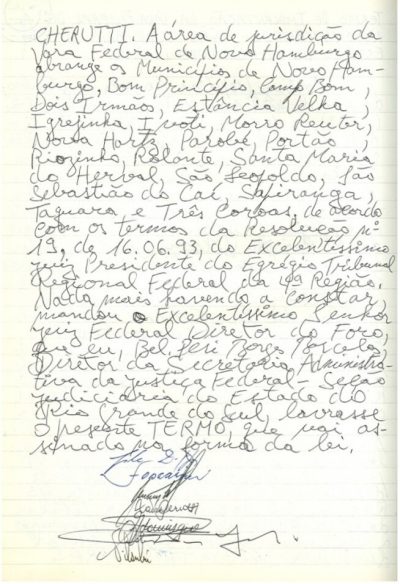 CHERUTTI. A área de jurisdição da
Vara Federal de Novo Hamburgo
abrange os Municípios de Novo Ham-
burgo, Bom Princípio, Campo Bom,
Dois Irmãos, Estância Velha,
Igrejinha, Ivoti, Morro Reuter,
Nova Hartz, Parobé, Portão,
Riozinho, Rolante, Santa Maria
do Herval, São Leopoldo, São
Sebastião do Caí, Sapiranga,
Taquara e Três Coroas, de acordo
com os termos da Resolução nº
19, de 16.06.93, do Excelentíssimo
Juiz Presidente do Egrégio Tribunal
Regional Federal da 4ª Região.
Nada mais havendo a constar,
mandou o Excelentíssimo Senhor
Juiz Federal Diretor do Foro,
que eu, Bel.
Diretor da Secretaria Administra-
tiva da Justiça Federal - Seção
Judiciária do Estado do
Rio Grande do Sul, lavrasse
o presente TERMO, que vai as-
sinado na forma da lei.